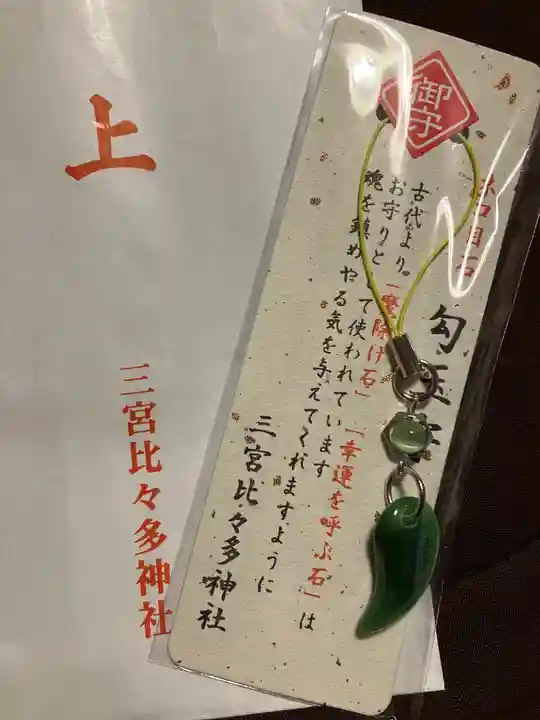 上
三宮比々多神社
御守
勾玉守
古代より「魔除け石」「幸運を呼ぶ石」は
お守りとして使われています
魂を鎮めやる気を与えてくれますように
三宮比々多神社